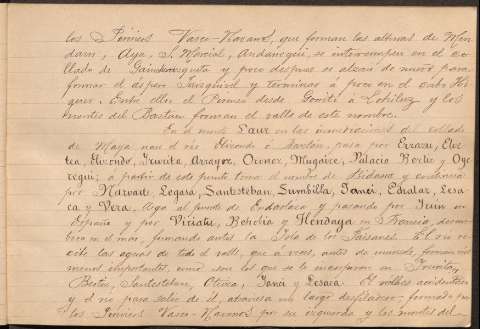 los Pirineos Vasco-Navarros, que forman las alturas de Men
daur, Aya, S. Marcial, Andaregui, se interrumpen en el co
llado de y poco despues se alzan de nuevo para
formar el aspero Jaizquivel y terminar a poco en el cabo Hi
guer. Entre ellos el Pirineo desde Gorriti a y los
montes del Baztan forman el valle de este nombre.
En el monte Laur en las inmediaciones del collado
de Maya nace el rio ó Baztan, pasa por Errazu, Elve
tea, Elizondo, Irurita, Arrayoz, Oronoz, Mugaire, Palacio Bertiz y Oye
regui; á partir de este punto toma el nombre de Bidasoa y continúa
por Narvart Legasa, Santesteban, Sumbilla, Janci, Echalar, Lesa
ca y Vera, llega al puente de Endarlaza y pasando por Irun en
España y por Viriatu, Behobia y Hendaya en Francia, desem
boca en el mar, formando antes la Isla de los Faisanes. El rio re
coge las aguas de todo el valle, que á veces, antes de mucho, forman rios
menos importantes, como son los que se le incorporan en Irurita,
Bertiz, Santesteban, Oteiza, Janci y Lesaca. El valle es accidentado
y el rio para salir de él, atraviesa un largo desfiladero formado por
los Pirineos Vasco-Navarros por su izquierda y los montes del